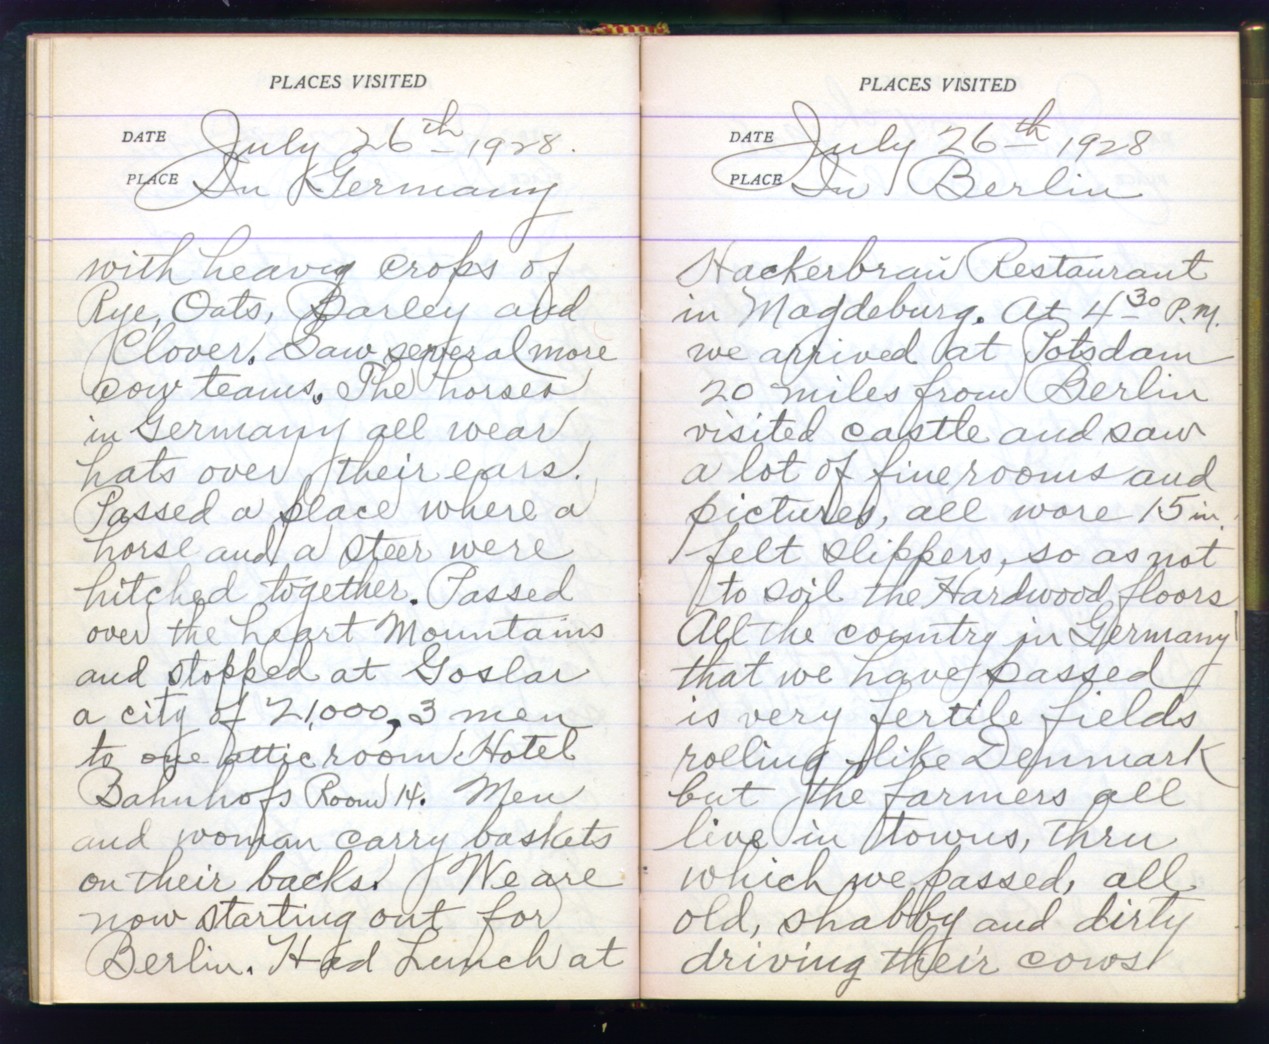 PLACES VISITED
DATE July 26th 1928.
PLACE In Germany
with heavy crops of
Rye, Oats, Barley and
Clover. Saw several more
cow teams. The horses
in Germany all wear
hats over their ears.
Passed a place where a
horse and a steer were
hitched together. Passed
over the heart Mountains
and stopped at Goslar
a city of 21,000, 3 men
to one attic room. Hotel
Bahnhofs Room 14. Men
and woman carry baskets
on their backs. We are
now starting out for
Berlin. Had Lunch at
PLACES VISITED
DATE July 26th 1928
PLACE In Berlin
Hackerbrau Restaurant
in Magdeburg. At 4 30 P.M.
we arrived at Potsdam
20 miles from Berlin
visited castle and saw
a lot of fine rooms and
pictures, all wore 15 in.
felt slippers, so as not
to soil the Hardwood floors
All the country in Germany
that we have passed
is very fertile fields
rolling like Denmark
but the farmers all
live in towns, thru
which we passed, all
old, shabby and dirty
driving their cows